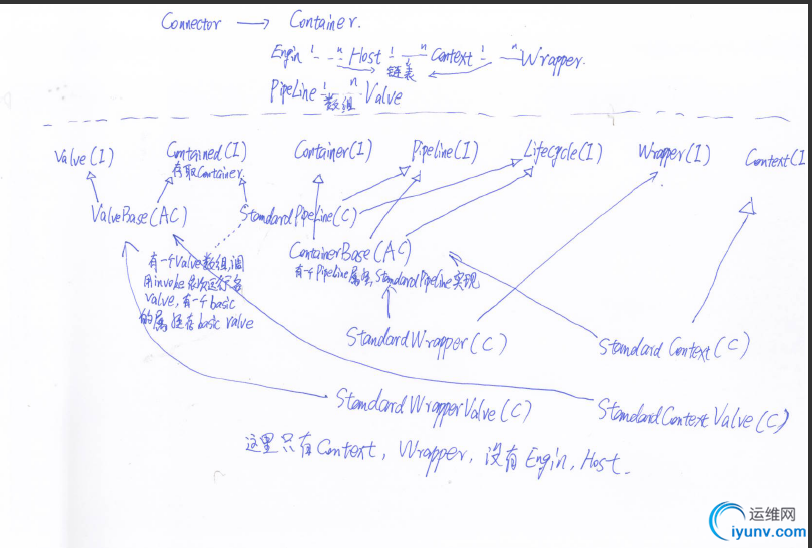 Connector → Container.
Engin 1 - - n Host 1 — n Context 1 - — n Wrapper.
链表
PipeLine 1 n Valve
数组
Valve(I) Contained(I) Container(I) Pipeline(I) Lifecycle(I) Wrapper(I) Context(I
存取Container
ValveBase(AC) StandardPipeline(C)
ContainerBase(AC)
有一个Pipeline属性, StandardPipeline实现
有一个Valve数组,调
用invoke依次运行各
valve,有一个basic
的属性存basic valve
StandardWrapper(C) Standard Context(C)
StandardWrapperValve(C) StandardContextValve(C)
这里只有Context, Wrapper, 没有Engin, Host.
运维网
iyunv.com